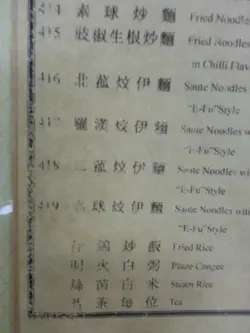 414 素球炒麵 Fried Noodles
415 豉椒生根炒麵 Fried Noodles
in Chilli Flav
416 北菰炆伊麵 Saute Noodles with
"E-Fu"Style
417 羅漢炆伊麵 Saute Noodles with
"E-Fu"Style
418 三菰炆伊麵 Saute Noodles with
"E-Fu"Style
419 素球炆伊麵 Saute Noodles with
"E-Fu"Style
炒飯 Fried Rice
明火白粥 Plane Congee
絲苗白米 Steam Rice
茗茶每位 Tea